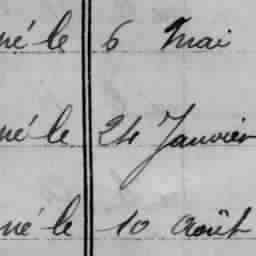 né le 6 Mai
né le 24 Janvier
né le 10 Août